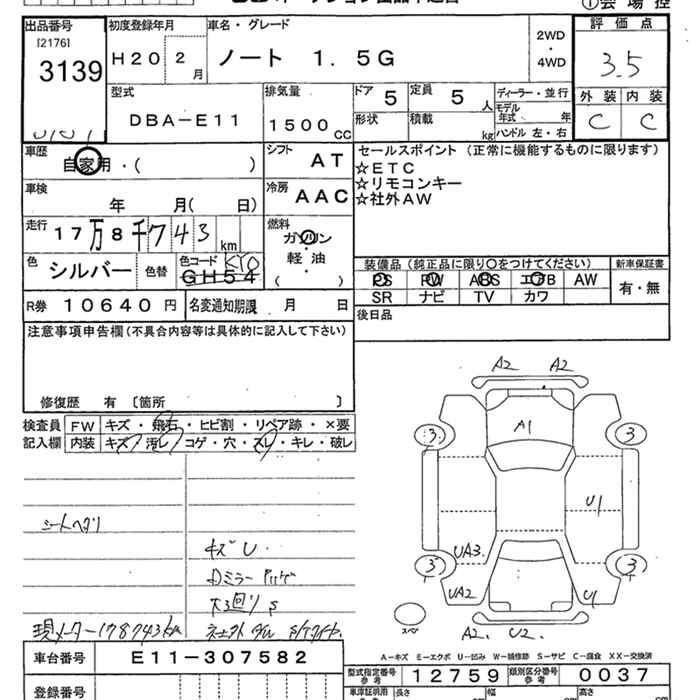 出品番号 初度登録年月 車名・グレード 2WD・4WD 評価点
[2176]
3139 H20 2月 ノート 1.5G 3.5
型式 排気量 ドア 5 定員 5人 ディーラー・並行 外装 内装
DBA-E11 1500cc 形状 積載 kg モデル年式 年 C C
ハンドル 左・右
車歴 自家用・( ) シフト AT セールスポイント (正常に機能するものに限ります)
☆ETC
車検 年 月( 日) 冷房 AAC ☆リモコンキー
☆社外AW
走行 17万8千743km 燃料 ガソリン・軽油・( )
色 シルバー 色替 色コード KY0 GH54
装備品 (純正品に限り○をつけてください) 新車保証書
PS PW ABS エアB AW 有・無
SR ナビ TV カワ
R券 10640円 名変通知期限 月 日
後日品
注意事項申告欄(不具合内容等は具体的に記入して下さい)
修復歴 有 [箇所 ]
検査員 FW キズ・飛石・ヒビ割・リペア跡・×要
記入欄 内装 キズ・汚レ・コゲ・穴・スレ・キレ・破レ
A2 A2
A1
3 3
U1
UA3
3 3
UA2 U
スペア
A2. U2.
シートヘタリ
キズ U
現メーター178743km
A-キズ E-エクボ U-凹み W-補修跡 S-サビ C-腐食 XX-交換済
車台番号 E11-307582
型式指定番号 参考 12759 類別区分番号 参考 0037
登録番号 長さ 幅 高さ